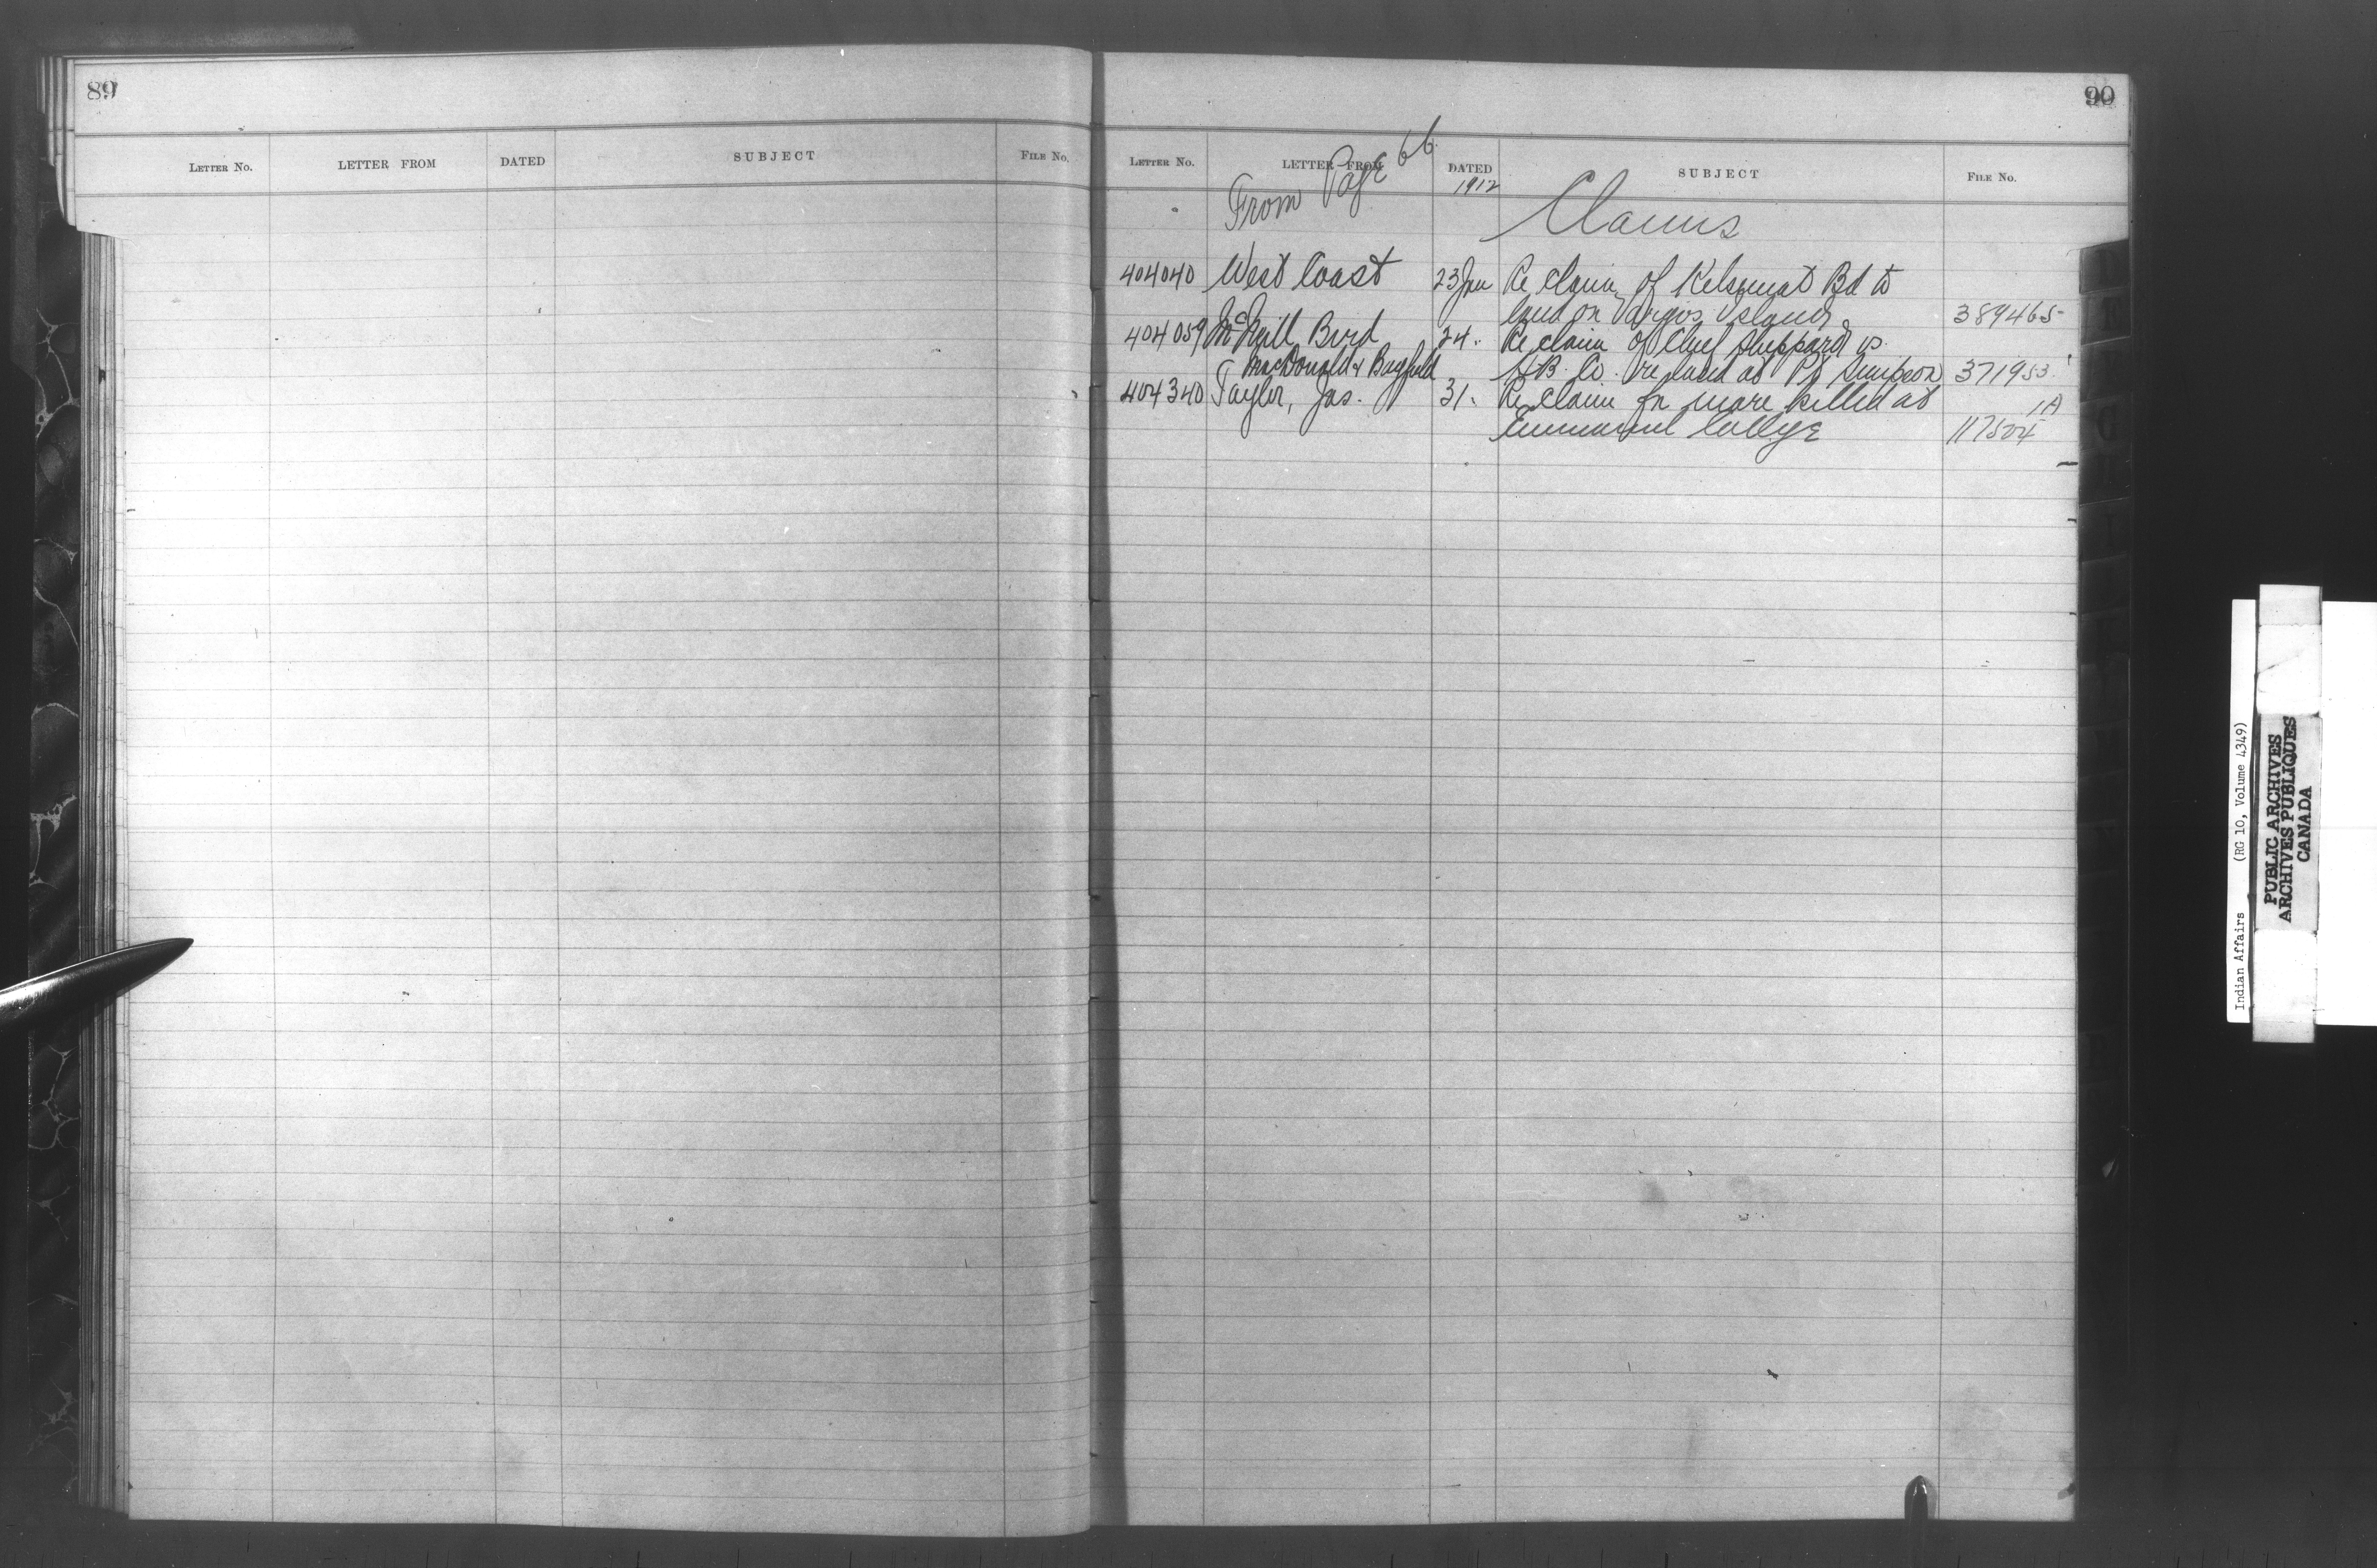 89
LETTER NO. LETTER FROM DATED SUBJECT FILE NO.
90
LETTER NO. LETTER FROM DATED SUBJECT FILE NO.
From Page 66. 1912
Claims
404040 West Coast 23 Jan Re claim of Kelsemat Bd to
land on Vargos Island 389465
404059 McNeill, Bird 24. Re claim of Chief Sheppard vs.
MacDonald & Bayfield H.B. Co. re land at Pt Simpson 371953
404340 Taylor, Jas. 31. Re claim for mare killed at 1A
Emmanuel College 117504
Indian Affairs (RG 10, Volume 4349)
PUBLIC ARCHIVES
ARCHIVES PUBLIQUES
CANADA